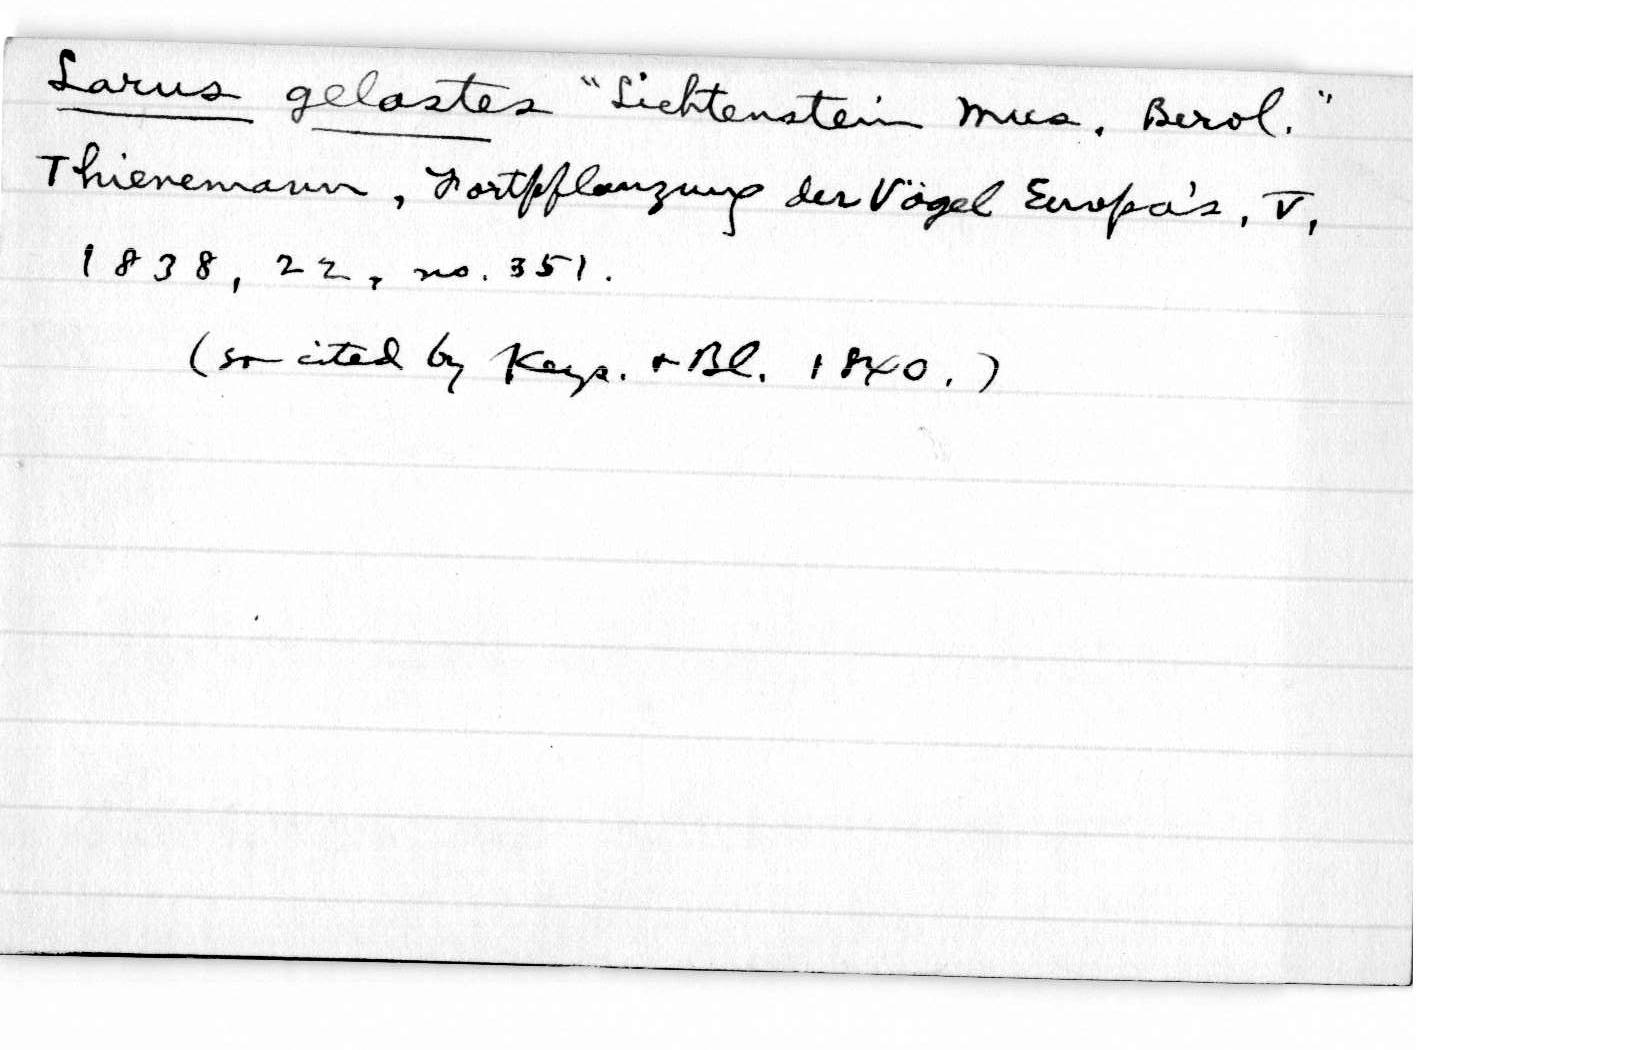 Larus gelastes "Lichtenstein Mus. Berol."
Thienemann, Fortpflanzung der Vögel Europa's, V,
1838, 22, no. 351.
(so cited by Keys. + Bl. 1840.)